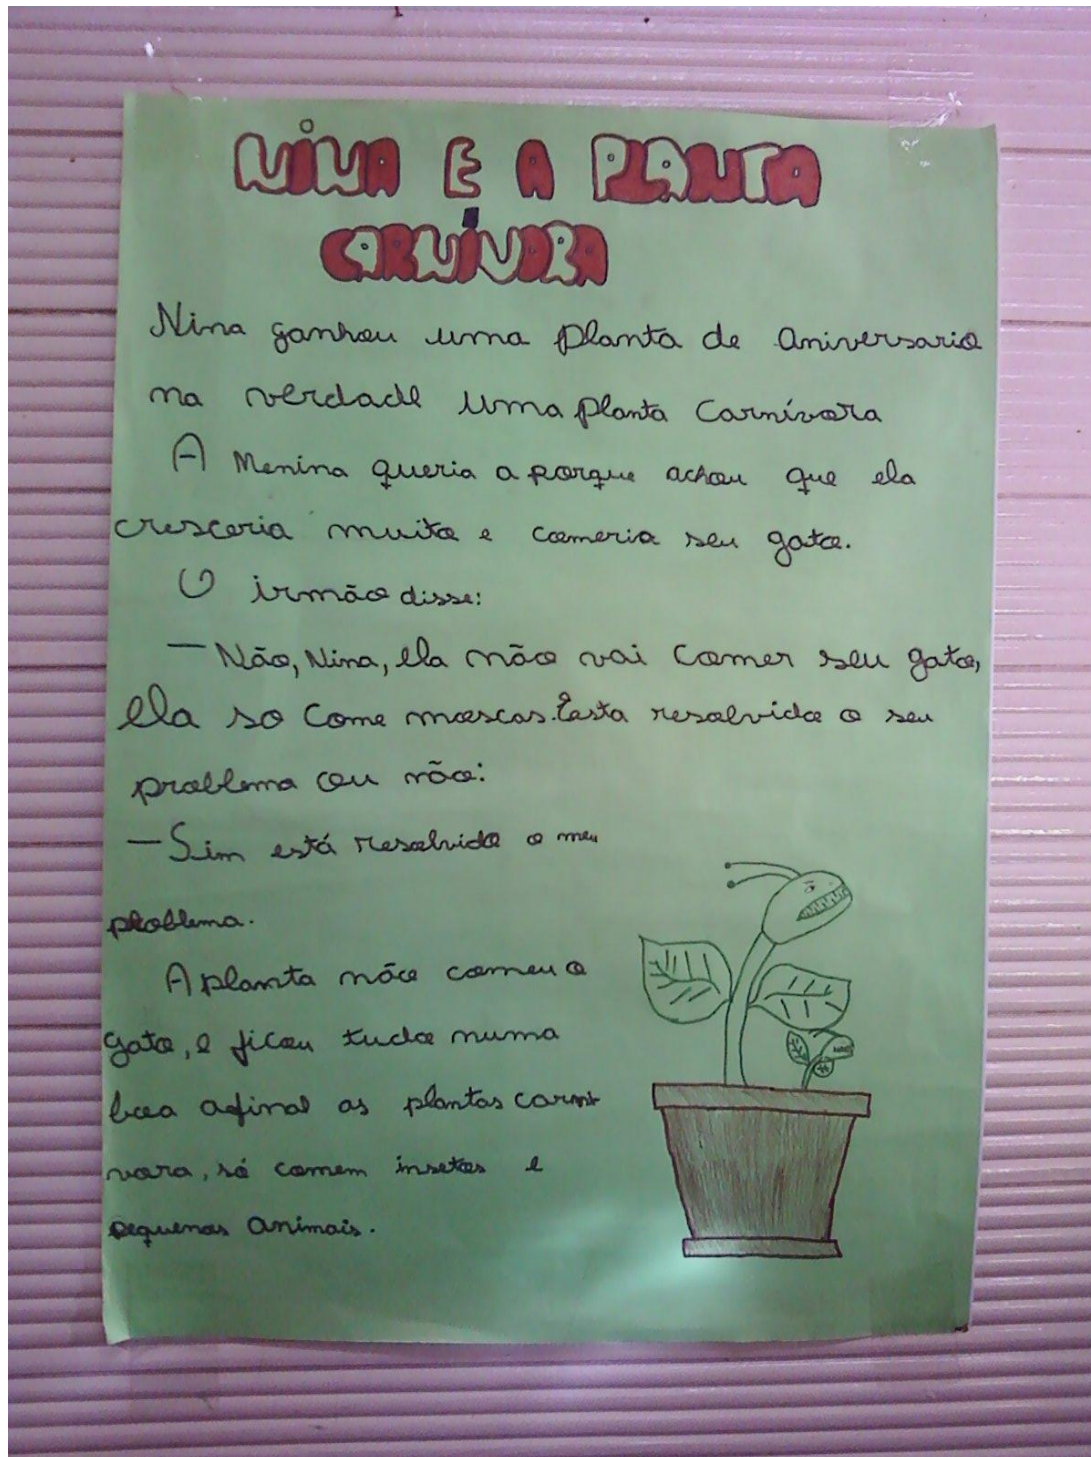 NINA E A PLANTA
CARNÍVORA
Nina ganhou uma planta de aniversario
na verdade uma planta Carnívora
A Menina queria a porque achou que ela
cresceria muito e comeria seu gato.
O irmão disse:
— Não, Nina, ela não vai comer seu gato,
ela so Come moscas. Esta resolvido o seu
problema ou não:
— Sim está resolvido o meu
problema.
A planta não comeu o
gato, e ficou tudo numa
boa afinal as plantas carní
vora, só comem insetos e
pequenos animais.